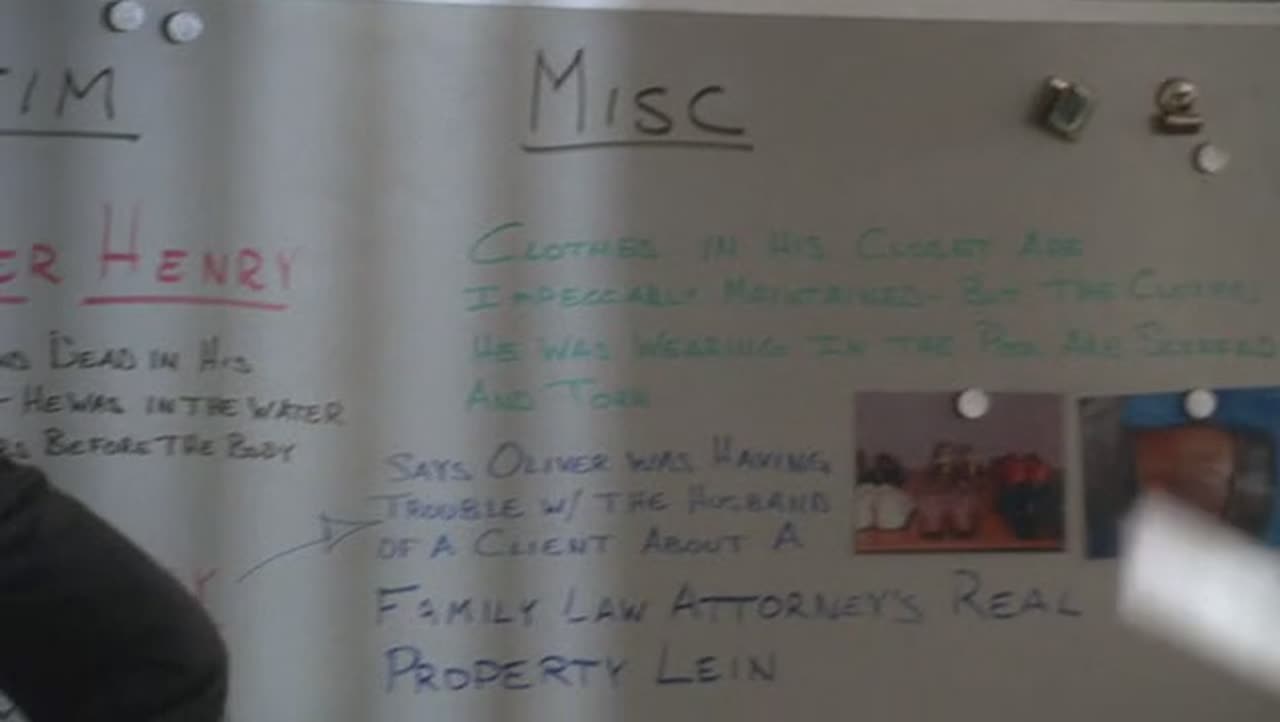 TIM
MISC
ER HENRY
CLOTHES IN HIS CLOSET ARE
IMPECCABLY MAINTAINED - BUT THE CLOTHES
HE WAS WEARING IN THE POOL ARE
AND TORN
ND DEAD IN HIS
- HE WAS IN THE WATER
RS BEFORE THE BODY
SAYS OLIVER WAS HAVING
TROUBLE W/ THE HUSBAND
OF A CLIENT ABOUT A
FAMILY LAW ATTORNEY'S REAL
PROPERTY LEIN
Y